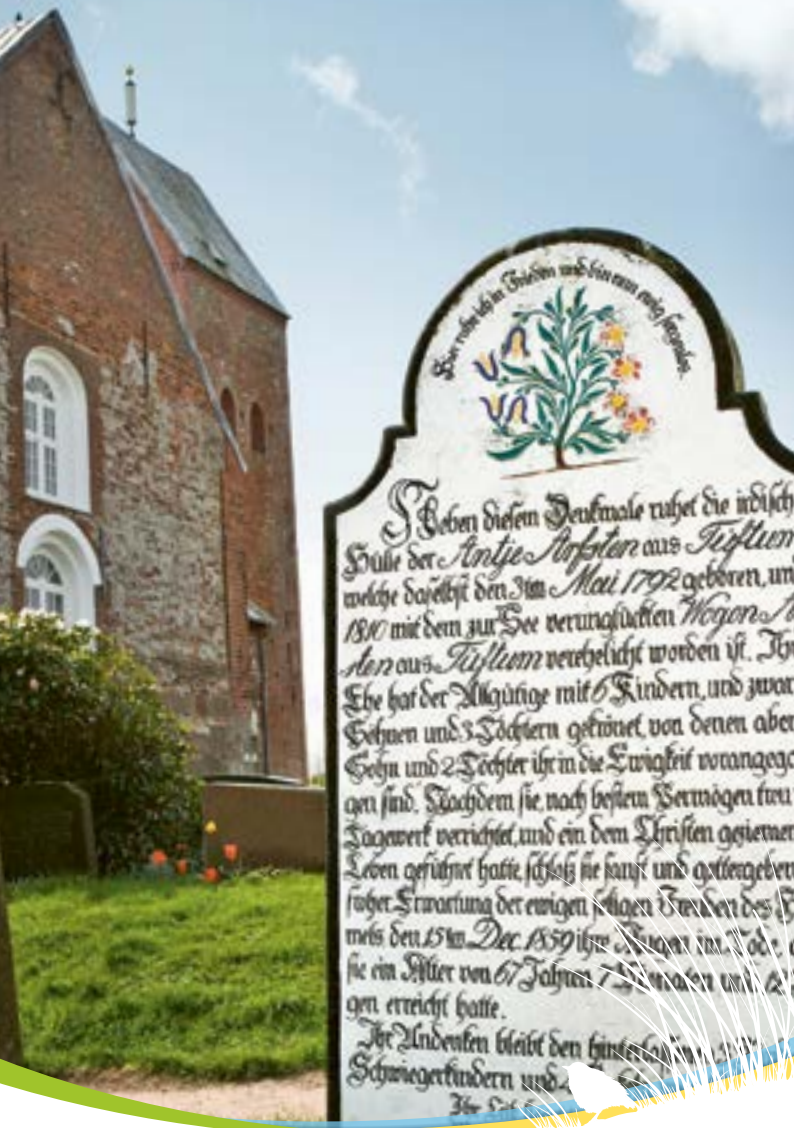 Hier ruhe ich in Frieden und bin nun ewig
Neben diesem Denkmale ruhet die irdisch
Hülle der Antje Arfsten aus Tüftum
welche daselbst den 3ten Mai 1792 geboren, un
1810 mit dem zur See verunglückten Wögen A
sten aus Tüftum verehelicht worden ist. Ihr
Ehe hat der Allgütige mit 6 Kindern, und zwar
Söhnen und 3 Töchtern gekrönet, von denen aber
Sohn und 2 Töchter ihr in die Ewigkeit vorangega
gen sind. Nachdem sie, nach bestem Vermögen treu
Tagewerk verrichtet, und ein dem Christen geziemen
Leben geführet hatte, schloß sie sanft und gottergeben
froher Erwartung der ewigen seligen Freuden des H
mels den 15ten Dec. 1859 ihre Augen im Tode,
sie ein Alter von 67 Jahren 7 Monaten und 12
gen erreicht hatte.
Ihr Andenken bleibt den
Schwiegerkindern und
Ihr